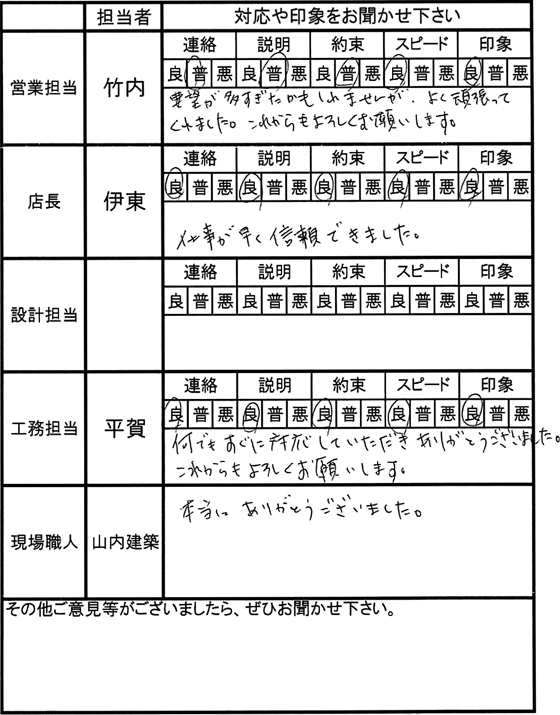 担当者 対応や印象をお聞かせ下さい
営業担当 竹内
連絡 説明 約束 スピード 印象
良 普 悪 良 普 悪 良 普 悪 良 普 悪 良 普 悪
要望が多すぎたかもしれませんが、よく頑張って
くれました。これからもよろしくお願いします。
店長 伊東
連絡 説明 約束 スピード 印象
良 普 悪 良 普 悪 良 普 悪 良 普 悪 良 普 悪
仕事が早く信頼できました。
設計担当
連絡 説明 約束 スピード 印象
良 普 悪 良 普 悪 良 普 悪 良 普 悪 良 普 悪
工務担当 平賀
連絡 説明 約束 スピード 印象
良 普 悪 良 普 悪 良 普 悪 良 普 悪 良 普 悪
何でもすぐに対応していただきありがとうございました。
これからもよろしくお願いします。
現場職人 山内建築
本当にありがとうございました。
その他ご意見等がございましたら、ぜひお聞かせ下さい。